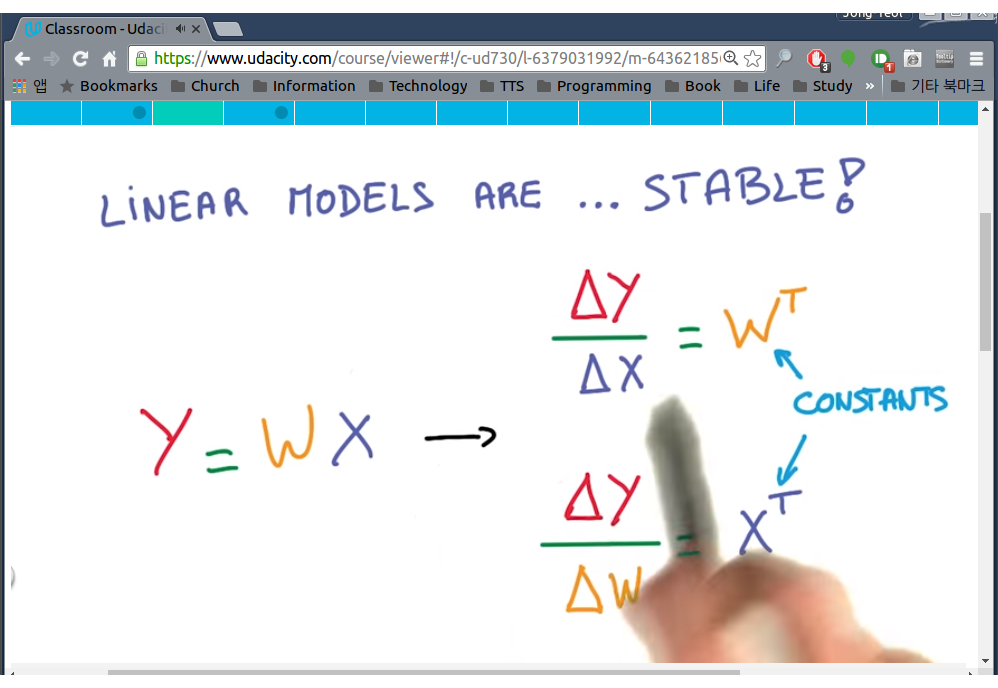 Jong Yeol
Classroom - Udaci
https://www.udacity.com/course/viewer#!/c-ud730/l-6379031992/m-64362185
3
1
앱 Bookmarks Church Information Technology TTS Programming Book Life Study » 기타 북마크
LINEAR MODELS ARE ... STABLE!
ΔY
ΔX
= W^T
CONSTANTS
Y = W X →
ΔY
ΔW
= X^T